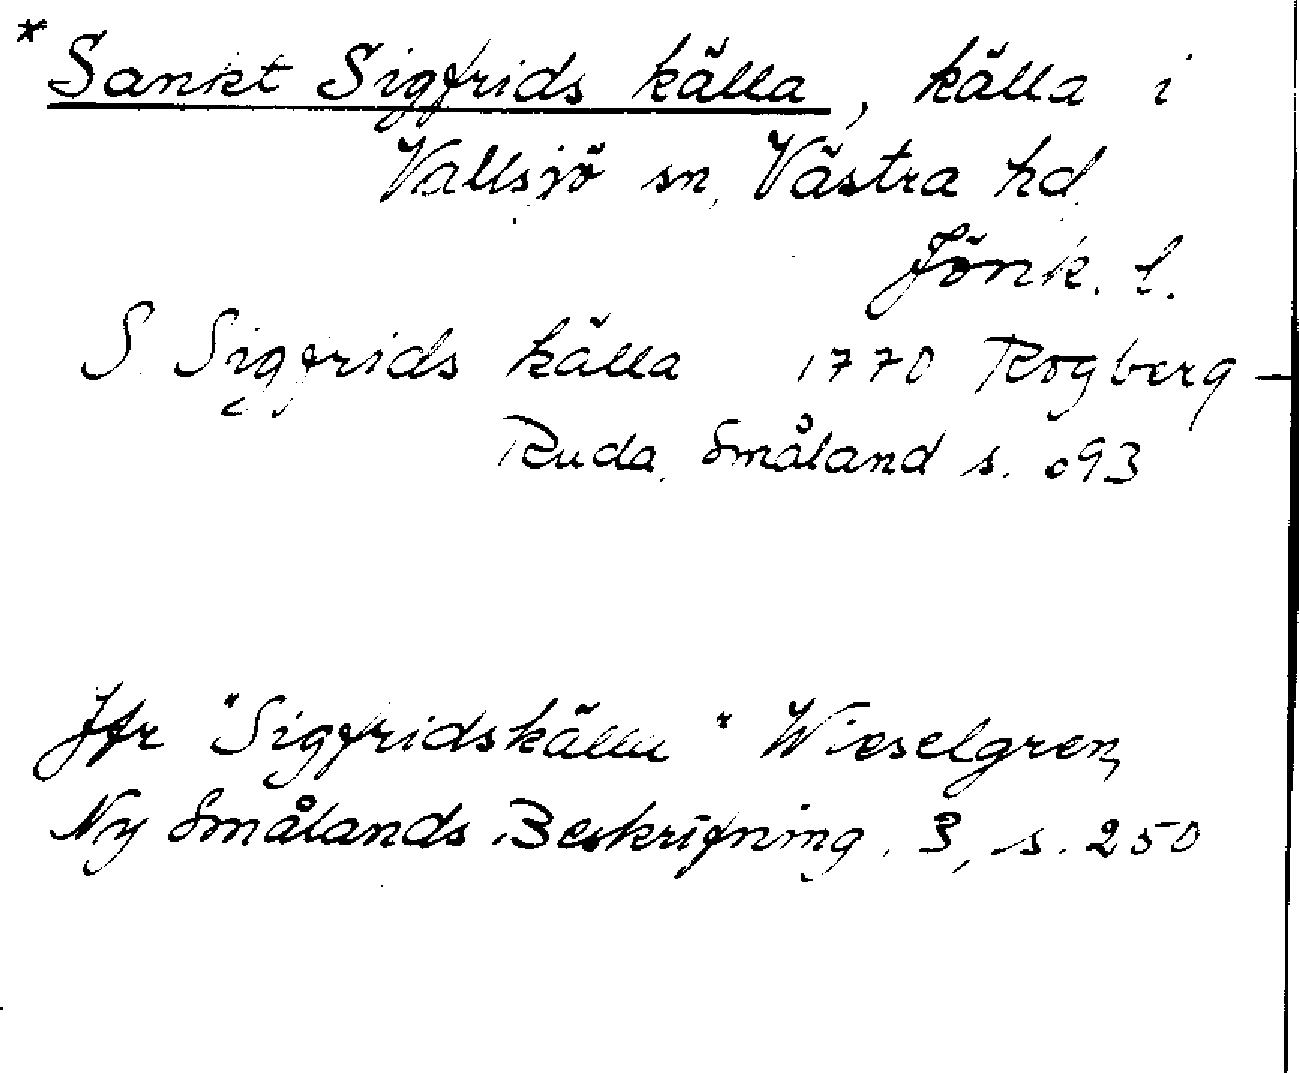 * Sankt Sigfrids källa, källa i
Vallsjö sn, Västra hd
Jönk. l.
S. Sigfrids källa 1770 Rogberg -
Ruda, Småland s.
Jfr "Sigfridskälla" Wieselgren,
Ny Smålands Beskrifning, 3, s. 250